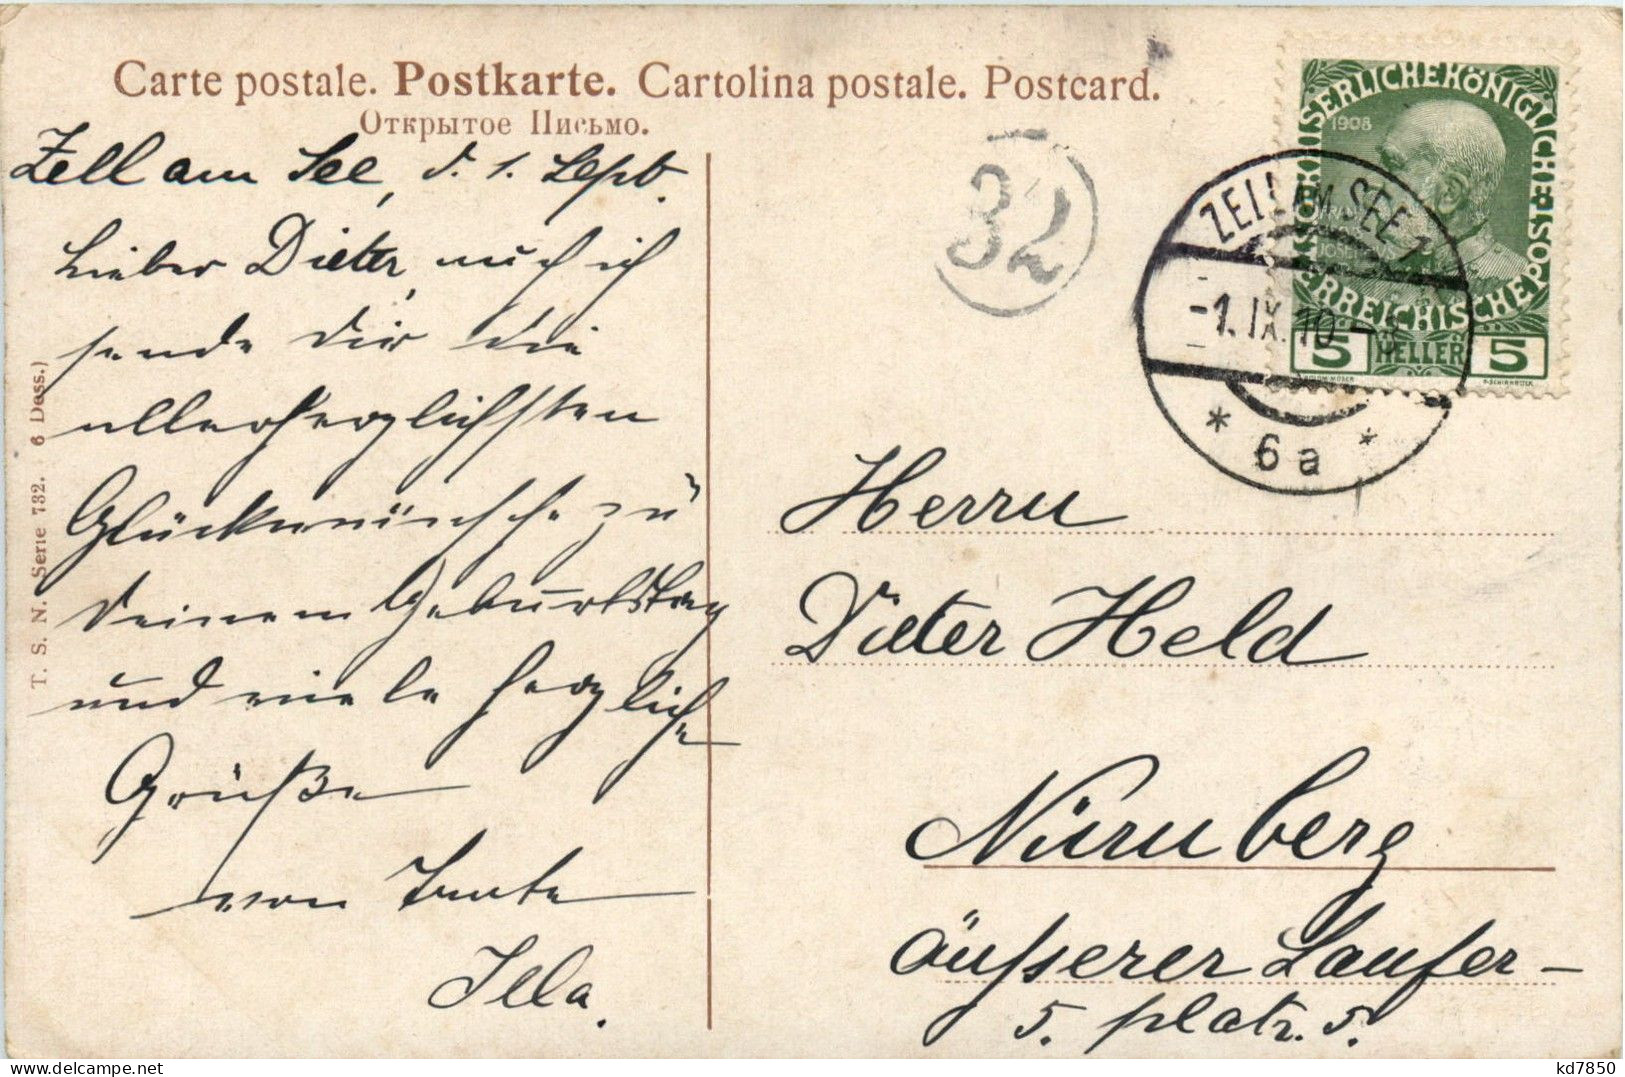 Carte postale. Postkarte. Cartolina postale. Postcard.
Открытое Письмо.
Zell am See, d. 1. Sept.
Lieber Dieter, auch ich
sende Dir die
allerherzlichsten
Glückwünsche zu
Deinem Geburtstag
und viele herzliche
Grüße
von Tante
Jela.
T. S. N. Serie 732. (6 Dess.)
32
KAISERLICHEKÖNIGLICHE ÖSTERREICHISCHE POST
1908
5 HELLER 5
ZELL AM SEE 1
-1. IX. 10 -
* 6a *
Herrn
Dieter Held
Nürnberg
äußerer Laufer-
5. platz. 5.
kd7850